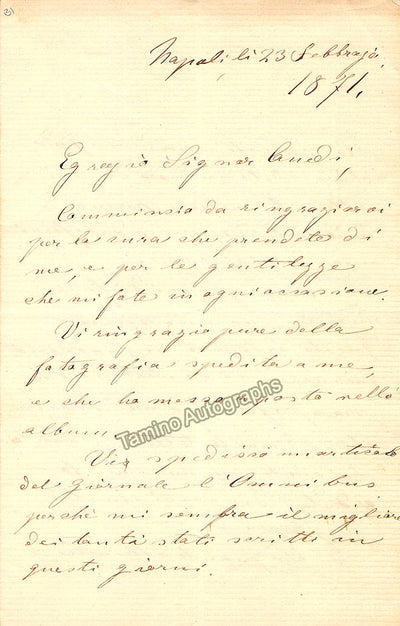 3)
Napoli, li 23 Febbrajo
1871.
Egregio Signor
Comminsio da ringraziarvi
per la cura che prendete di
me, e per le gentilezze
che mi fate in ogni
Vi ringrazio pure della
fotografia spedita a me,
e che ho messo a posto nello
album.
Tamino Autographs
Vi spedisso un articolo
del Giornale l'Omnibus
perché mi sembra il migliore
dei tanti stati scritti in
questi giorni.